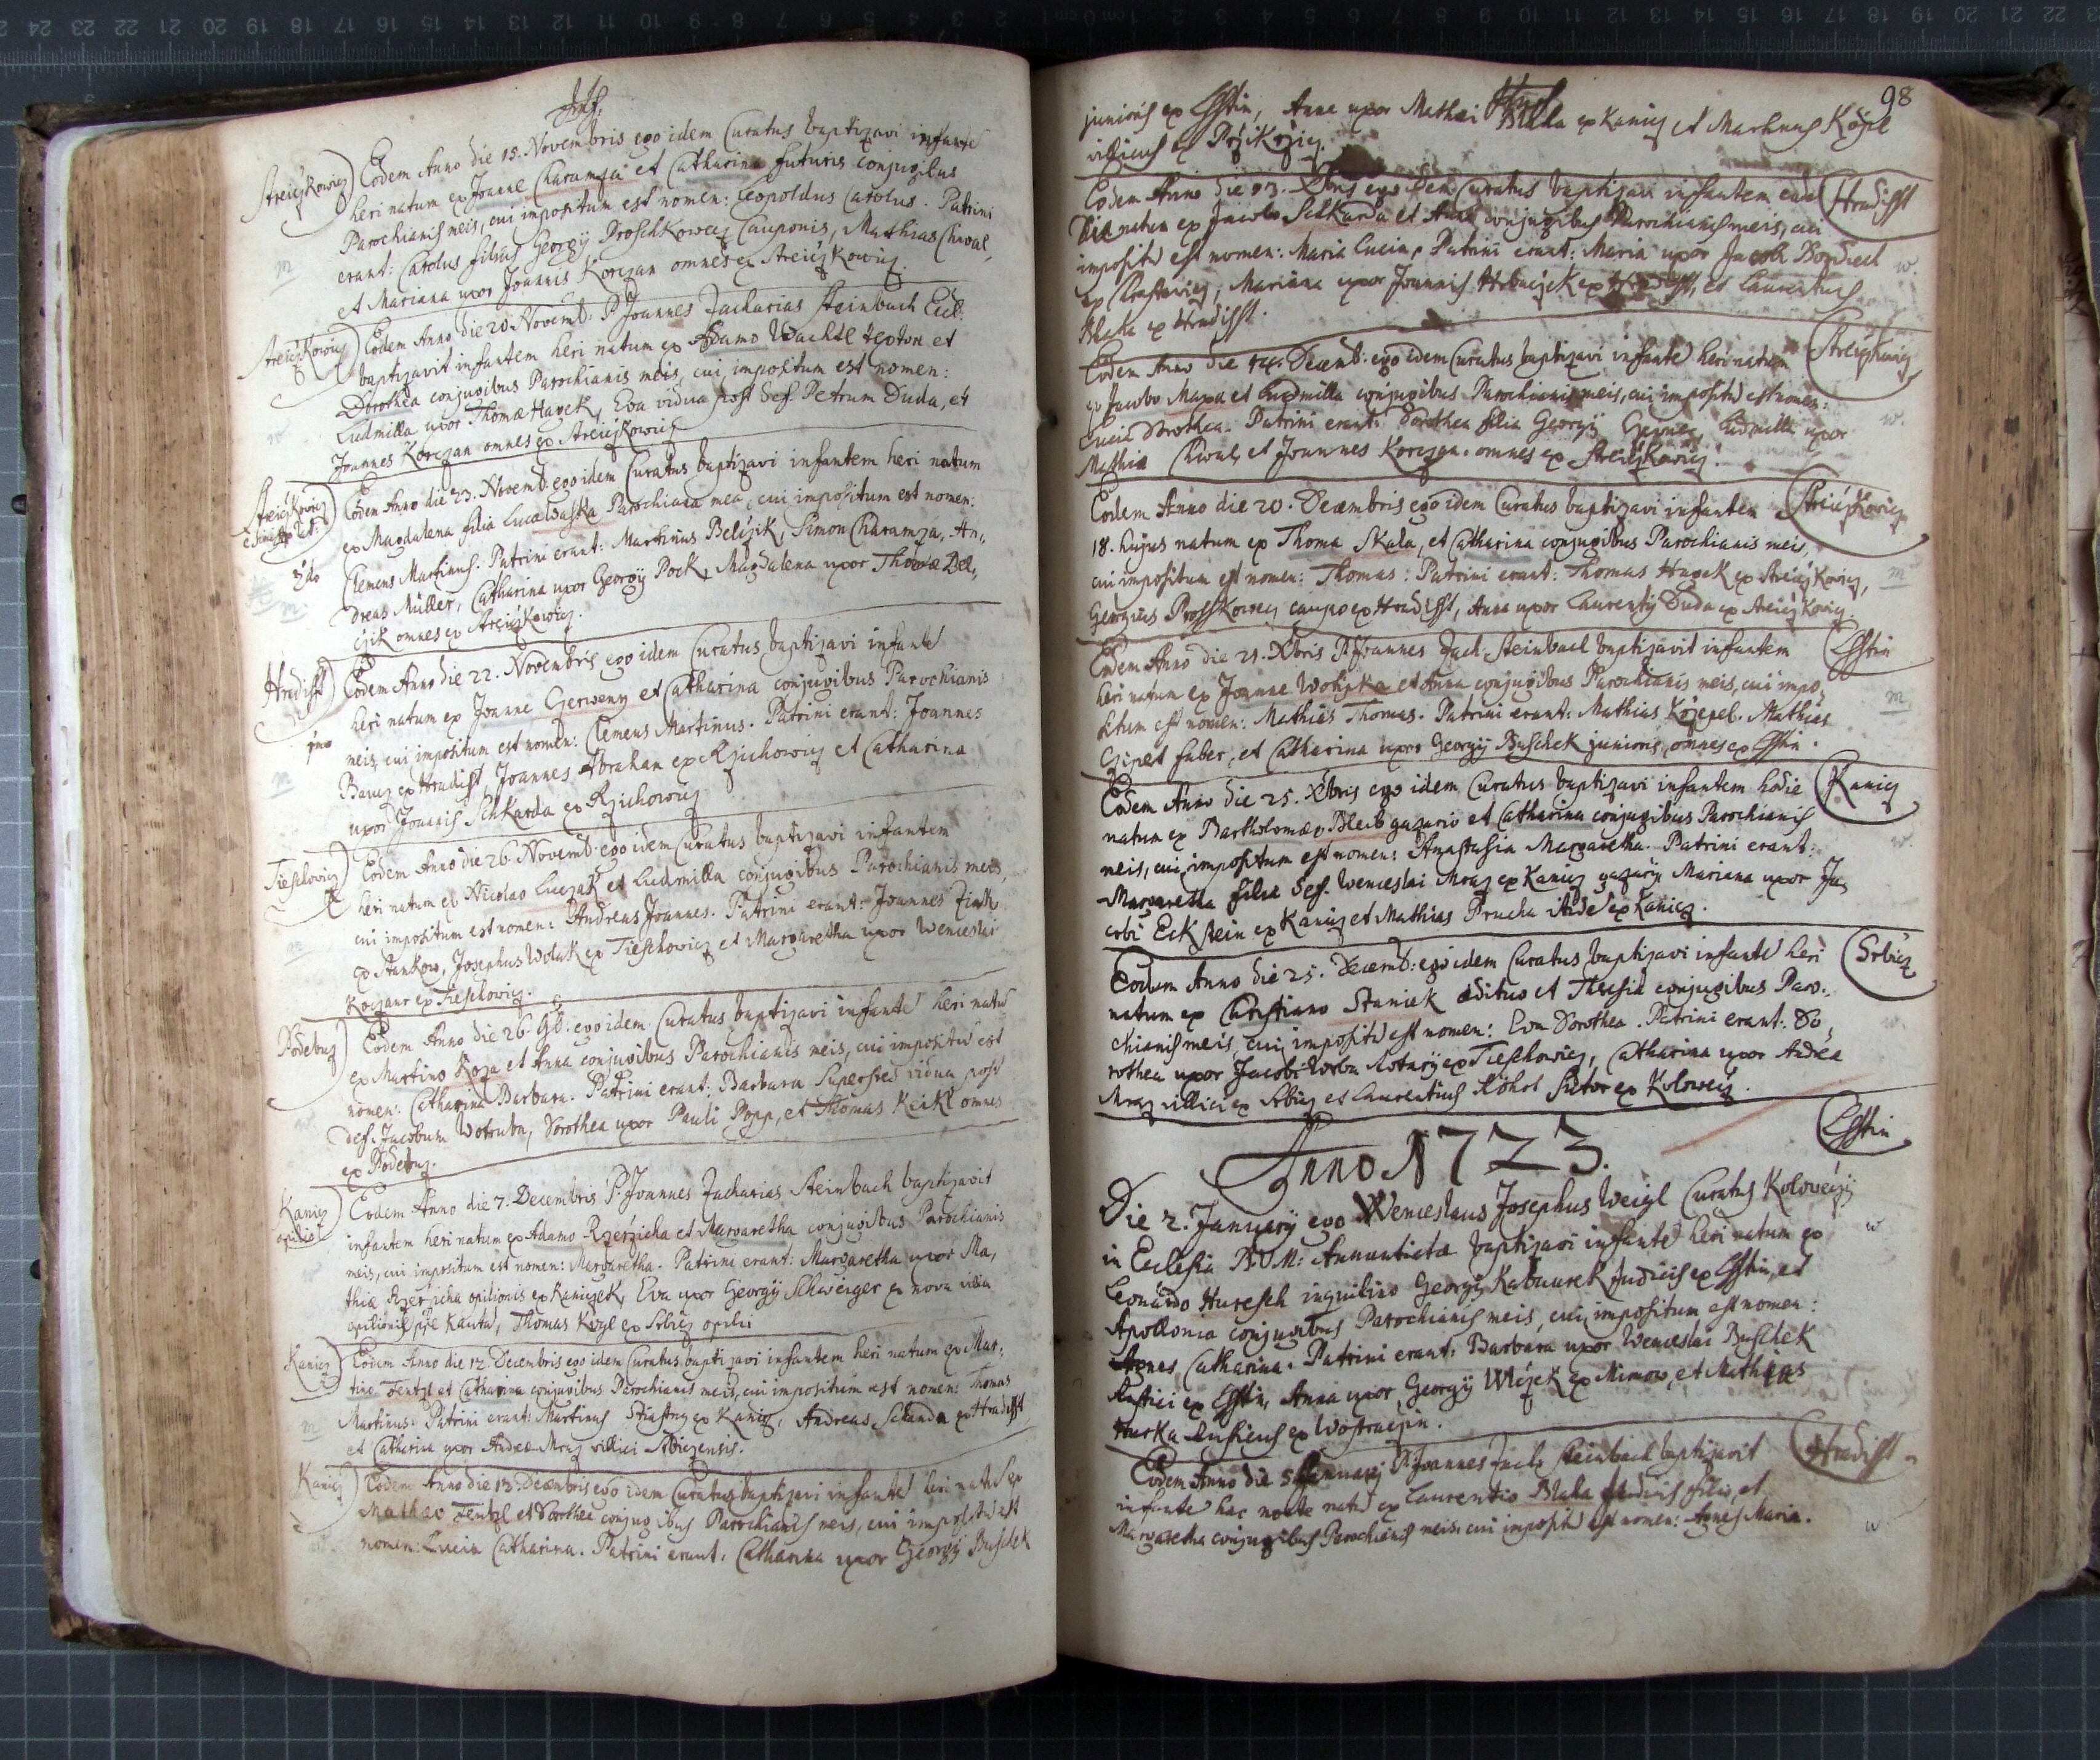 Streiczkowicz) Eodem Anno die 15. Novembris ego idem Curatus baptizavi infantē
heri natum ex Joanne Charamza et Catharina futuris conjugibus
Parochianis meis, cui impositum est nomen: Leopoldus Carolus. Patrini
erant: Carolus filius Georgÿ Proschkowecz Cauponis, Mathias Chwal,
et Mariana uxor Joannis Korczan omnes ex Streiczkowicz.
Streiczkowicz) Eodem Anno die 20. Novemb: P. Joannes Zacharias Steinbach Eccl:
baptizavit infantem heri natum ex Adamo Wachtl textore et
Dorothea conjugibus Parochianis meis, cui impositum est nomen:
Ludmilla uxor Thomæ Hayek, Eva vidua post def. Petrum Duda, et
Joannes Korczan omnes ex Streiczkowicz
Streiczkowicz Eodem Anno die 23. Novemb: ego idem Curatus baptizavi infantem heri natum
ex Magdalena filia Lucæ Waska Parochiana mea, cui impositum est nomen:
Clemens Martinus. Patrini erant: Martinus Belczik, Simon Charamza, An,,
dreas Müller, Catharina uxor Georgÿ Pock, Magdalena uxor Thomæ Bel,,
czik omnes ex Streiczkowicz.
Hradisst) Eodem Anno die 22. Novembris ego idem Curatus baptizavi infantē
heri natum ex Joanne Gerweny et Catharina conjugibus Parochianis
meis, cui impositum est nomen: Clemens Martinus. Patrini erant: Joannes
Baruz ex Hradisst, Joannes Abraham ex Rzichowicz et Catharina
uxor Joannis Schkarda ex Rzichowicz
Tieschowicz) Eodem Anno die 26. Novemb: ego idem Curatus baptizavi infantem
heri natum ex Nicolao Luczak et Ludmilla conjugibus Parochianis meis,
cui impositum est nomen: Andreas Joannes. Patrini erant: Joannes Zink
ex Stankow, Josephus Wolak ex Tieschowicz et Margaretha uxor Wenceslai
Korzanr ex Tieschowicz.
Podebuz) Eodem Anno die 26. 9b: ego idem Curatus baptizavi infantē heri natū
ex Martino Koza et Anna conjugibus Parochianis meis, cui impositū est
nomen: Catharina Barbara. Patrini erant: Barbara Superstes vidua post
def. Jacobum Wotruba, Dorothea uxor Pauli Popp, et Thomas Keikl omnes
ex Podebuz.
Kanicz) Eodem Anno die 7. Decembris P. Joannes Zacharias Steinbach baptizavit
opilio infantem heri natum ex Adamo Rzerzicha et Margaretha conjugibus Parochianis
meis, cui impositum est nomen: Margaretha. Patrini erant: Margaretha uxor Ma,
thiæ Rzerzicha opilionis ex Kaniczek, Eva uxor Georgÿ Schweiger ex nova villa
opilionis, Thomas Kogl ex Srbicz opilio
Kanicz) Eodem Anno die 12. Decembris ego idem Curatus baptizavi infantem heri natum ex Mar:
tino Fentzl et Catharina conjugibus Parochianis meis, cui impositum est nomen: Thomas
Martinus. Patrini erant: Martinus Stiastny ex Kanicz, Andreas Schanda ex Hradisst
et Catharina uxor Andreæ Mraz villici Srbicensis.
Kanicz) Eodem Anno die 13. Decembris ego idem Curatus baptizavi infantē heri natū ex
Matheo Fentzl et Dorothea conjugibus Parochianis meis, cui impositū est
nomen: Lucia Catharina. Patrini erant: Catharina uxor Georgÿ Buschek
98
junioris ex Esstin, Anna uxor Mathæi Blaha ex Kanicz et Martinus Kögl
villicus ex Przikrzicz.
Eodem Anno die 13. Xbris ego idem Curatus baptizavi infantem eadē (Hradisst
die natum ex Jacobo Schkarda et Anna conjugibus Parochianis meis, cui
impositū est nomen: Maria Lucia. Patrini erant: Maria uxor Jacobi Bondiecl
ex Chrastavicz, Mariana uxor Joannis Hrbaczek ex Hradisst, et Laurentius
Blaha ex Hradisst.
Eodem Anno die 14. Decemb: ego idem Curatus baptizavi infantē heri natum (Streiczkowicz
ex Jacobo Maxa et Ludmilla conjugibus Parochianis meis, cui impositū est nomen:
Lucia Dorothea. Patrini erant: Dorothea filia Georgÿ, Ludmilla uxor
Mathiæ Chwal, et Joannes Korczan. omnes ex Streiczkowicz.
Eodem Anno die 20. Decembris ego idem Curatus baptizavi infantem (Streiczkowicz
18. hujus natum ex Thoma Skala, et Catharina conjugibus Parochianis meis,
cui impositum est nomen: Thomas: Patrini erant: Thomas Hayek ex Streiczkowicz,
Georgius Prosskowecz caupo ex Hradisst, Anna uxor Laurentÿ Duda ex Streiczkowicz.
Eodem Anno die 21. Xbris P. Joannes Zach. Steinbach baptizavit infantem (Esstin
heri natum ex Joanne Wohzka et Anna conjugibus Parochianis meis, cui impo,
situm est nomen: Mathias Thomas. Patrini erant: Mathias Kozepel. Mathias
Czipet faber, et Catharina uxor Georgÿ Buschek junioris, omnes ex Esstin.
Eodem Anno die 25. Xbris ego idem Curatus baptizavi infantem hodie (Kanicz
natum ex Bartholomæo Bleib gazario et Catharina conjugibus Parochianis
meis, cui impositum est nomen: Anastasia Margaretha. Patrini erant:
Margaretha filia def. Wenceslai Mraz ex Kanicz gazarÿ, Mariana uxor Ja,
cobi Eckstein ex Kanicz et Mathias Prucha itidē ex Kanicz.
Eodem Anno die 25. Decemb: ego idem Curatus baptizavi infantē heri (Srbicz
natum ex Christiano Staniek ædituo et Theresia conjugibus Paro:,
chianis meis, cui impositū est nomen: Eva Dorothea. Patrini erant: Do,
rothea uxor Jacobi Wrba Notarÿ ex Tieschowicz, Catharina uxor Andreæ
Mraz villici ex Srbicz et Laurentius Röhrl Sutor ex Kolowecz.
Anno 1723. (Esstin
Die 2. Januarÿ ego Wenceslaus Josephus Weigl Curatus Kolowecÿ
in Ecclesia B.V.M: Annuntiatæ baptizavi infantē heri natum ex
Leonardo Huresch inquilino Georgÿ Kabaurek Judicis ex Esstin, et
Apollonia conjugibus Parochianis meis, cui impositum est nomen:
Agnes Catharina. Patrini erant: Barbara uxor Wenceslai Buschek
Rustici ex Esstin, Anna uxor Georgÿ Wlczek ex Mimow, et Mathias
Hurka Rusticus ex Wostraczin.
Eodem Anno die 5. Januarÿ P. Joannes Zach. Steinbach baptizavit (Hradisst
infantē hac nocte natū ex Laurentio Blaha Judicis filio, et
Margaretha conjugibus Parochianis meis, cui impositū est nomen: Agnes Maria.